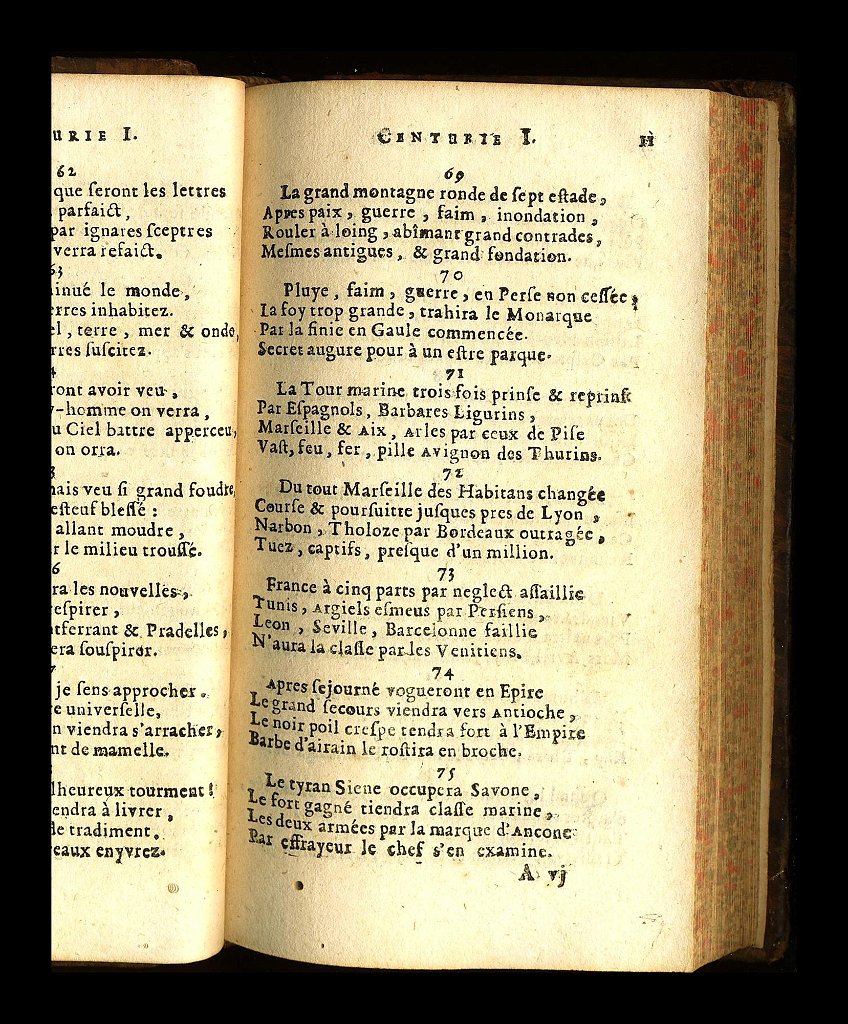 URIE I.
62
que ſeront les lettres
parfaict,
par ignares ſceptres
verra refaict.
63
inué le monde,
erres inhabitez.
el, terre, mer & onde,
rres ſuſcitez.
4
ront avoir veu,
-homme on verra,
u Ciel battre apperceu,
on orra.
mais veu ſi grand foudre
eſteuf bleſſé:
allant moudre,
r le milieu trouſſé.
6
ra les nouvelles,
reſpirer,
tferrant & Pradelles,
era ſouſpirer.
7
je ſens approcher.
e univerſelle,
n viendra s'arracher,
nt de mamelle.
lheureux tourment!
endra à livrer,
de tradiment.
eaux enyvrez.
CENTURIE I.
11
69
La grand montagne ronde de ſept eſtade,
Apres paix, guerre, faim, inondation,
Rouler à loing, abîmant grand contrades,
Meſmes antigues, & grand fondation.
70
Pluye, faim, guerre, en Perſe non ceſſée,
La foy trop grande, trahira le Monarque
Par la finie en Gaule commencée.
Secret augure pour à un eſtre parque.
71
La Tour marine trois fois prinſe & reprinſe
Par Eſpagnols, Barbares Ligurins,
Marſeille & Aix, Arles par ceux de Piſe
Vaſt, feu, fer, pille Avignon des Thurins.
72
Du tout Marſeille des Habitans changée
Courſe & pourſuitte juſques pres de Lyon,
Narbon, Tholoze par Bordeaux outragée,
Tuez, captifs, preſque d'un million.
73
France à cinq parts par neglect aſſaillie
Tunis, Argiels eſmeus par Perſiens,
Leon, Seville, Barcelonne faillie
N'aura la claſſe par les Venitiens.
74
Apres ſejourné vogueront en Epire
Le grand ſecours viendra vers Antioche,
Le noir poil creſpe tendra fort à l'Empire
Barbe d'airain le roſtira en broche.
75
Le tyran Siene occupera Savone,
Le fort gagné tiendra claſſe marine,
Les deux armées par la marque d'Ancone
Par effrayeur le chef s'en examine.
A vj